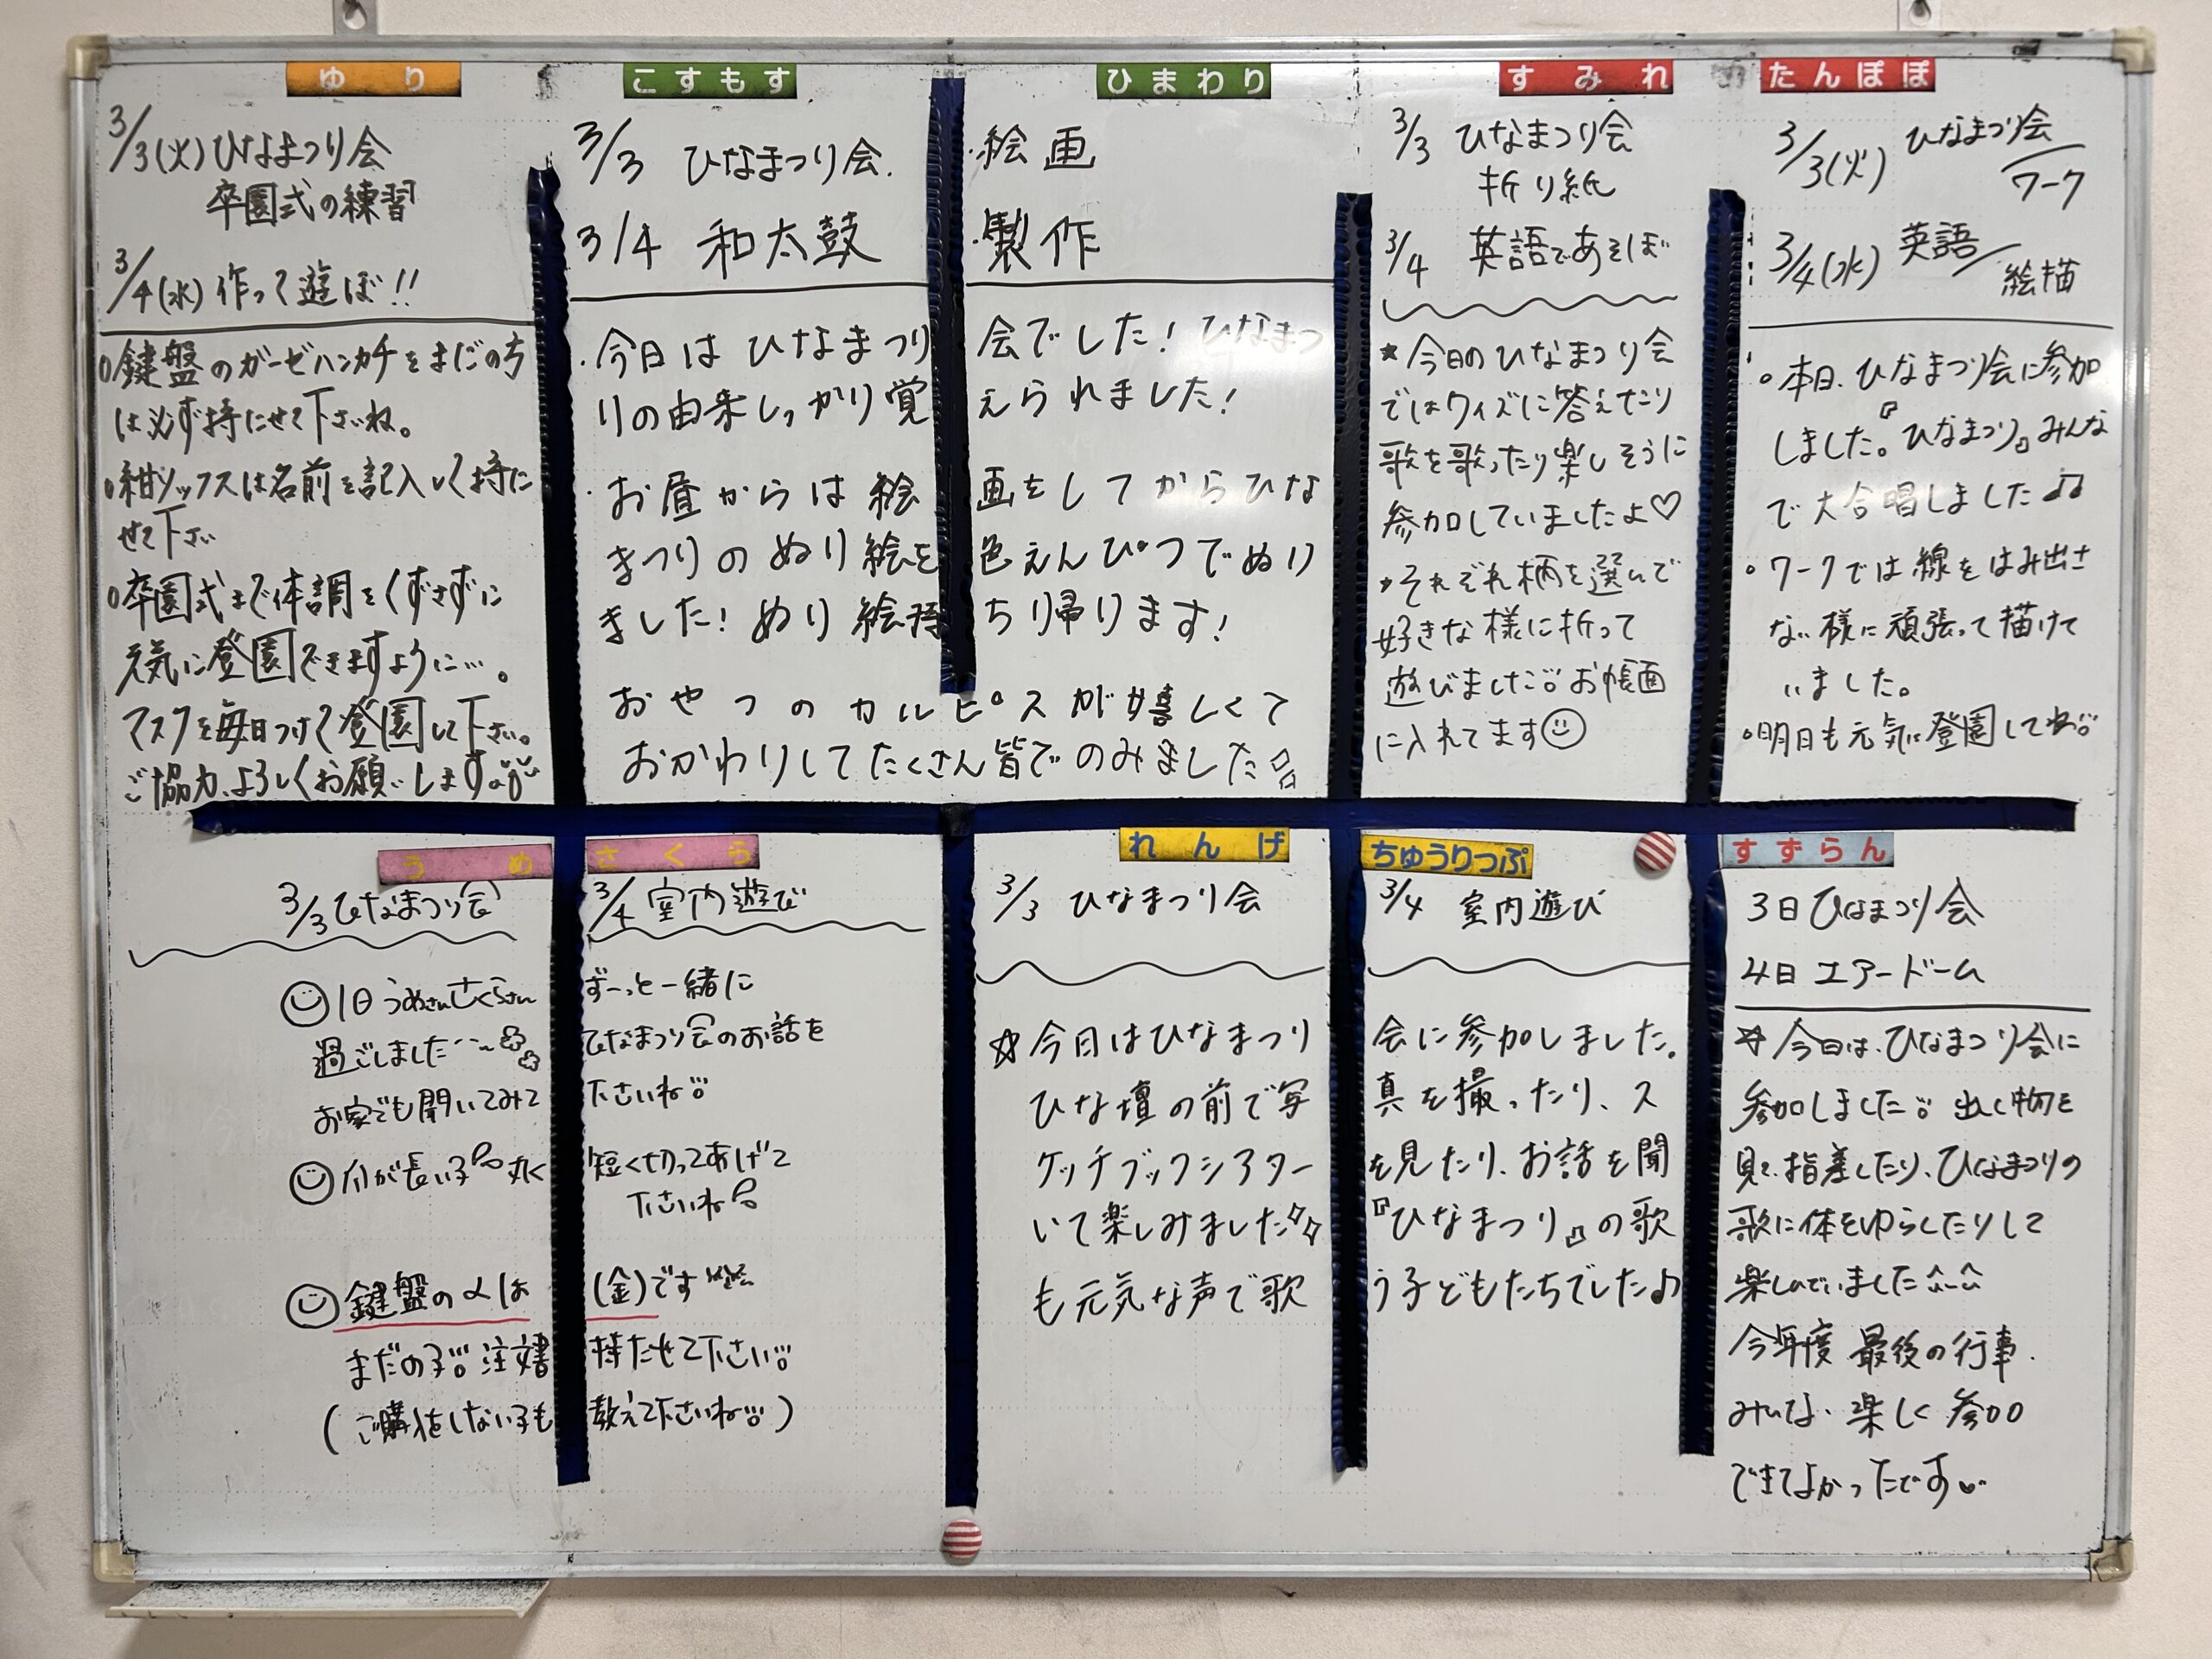 ゆり
3/3(火)ひなまつり会
卒園式の練習
3/4(水)作って遊ぼ!!
○鍵盤のガーゼハンカチをまだの方
は必ず持たせて下さいね。
○紺ソックスは名前を記入して持た
せて下さい
○卒園式まで体調をくずさずに
元気に登園できますように…。
マスクを毎日つけて登園して下さい。
ご協力、よろしくお願いします。
こすもす ひまわり
3/3 ひなまつり会. ・絵画
3/4 和太鼓 ・製作
・今日はひなまつり会でした!ひなまつ
りの由来しっかり覚えられました!
・お昼からは絵画をしてからひな
まつりのぬり絵を色えんぴつでぬり
ました!ぬり絵持ち帰ります!
おやつのカルピスが嬉しくて
おかわりしてたくさん皆でのみました
すみれ
3/3 ひなまつり会
折り紙
3/4 英語であそぼ
★今日のひなまつり会
ではクイズに答えたり
歌を歌ったり楽しそうに
参加していましたよ♡
★それぞれ柄を選んで
好きな様に折って
遊びました。お帳面
に入れてます
たんぽぽ
3/3(火) ひなまつり会/
ワーク
3/4(水) 英語/
絵描
○本日、ひなまつり会に参加
しました。『ひなまつり』みんな
で大合唱しました♫
○ワークでは線をはみ出さ
ない様に頑張って描けて
いました。
○明日も元気に登園してね
うめ さくら
3/3 ひなまつり会 3/4 室内遊び
1日うめさんさくらさんずーっと一緒に
過ごしました ひなまつり会のお話を
お家でも聞いてみて下さいね
爪が長い子 丸く短く切ってあげて
下さいね
鍵盤の〆は(金)です
まだの子 注文書持たせて下さい
(ご購入をしない子も教えて下さいね)
れんげ ちゅうりっぷ
3/3 ひなまつり会 3/4 室内遊び
☆今日はひなまつり会に参加しました。
ひな壇の前で写真を撮ったり、ス
ケッチブックシアターを見たり、お話を聞
いて楽しみました『ひなまつり』の歌
も元気な声で歌う子どもたちでした♪
すずらん
3日 ひなまつり会
4日 エアードーム
☆今日は、ひなまつり会に
参加しました。出し物を
見て指差したり、ひなまつりの
歌に体をゆらしたりして
楽しんでいました
今年度 最後の行事.
みんな 楽しく 参加
できてよかったです